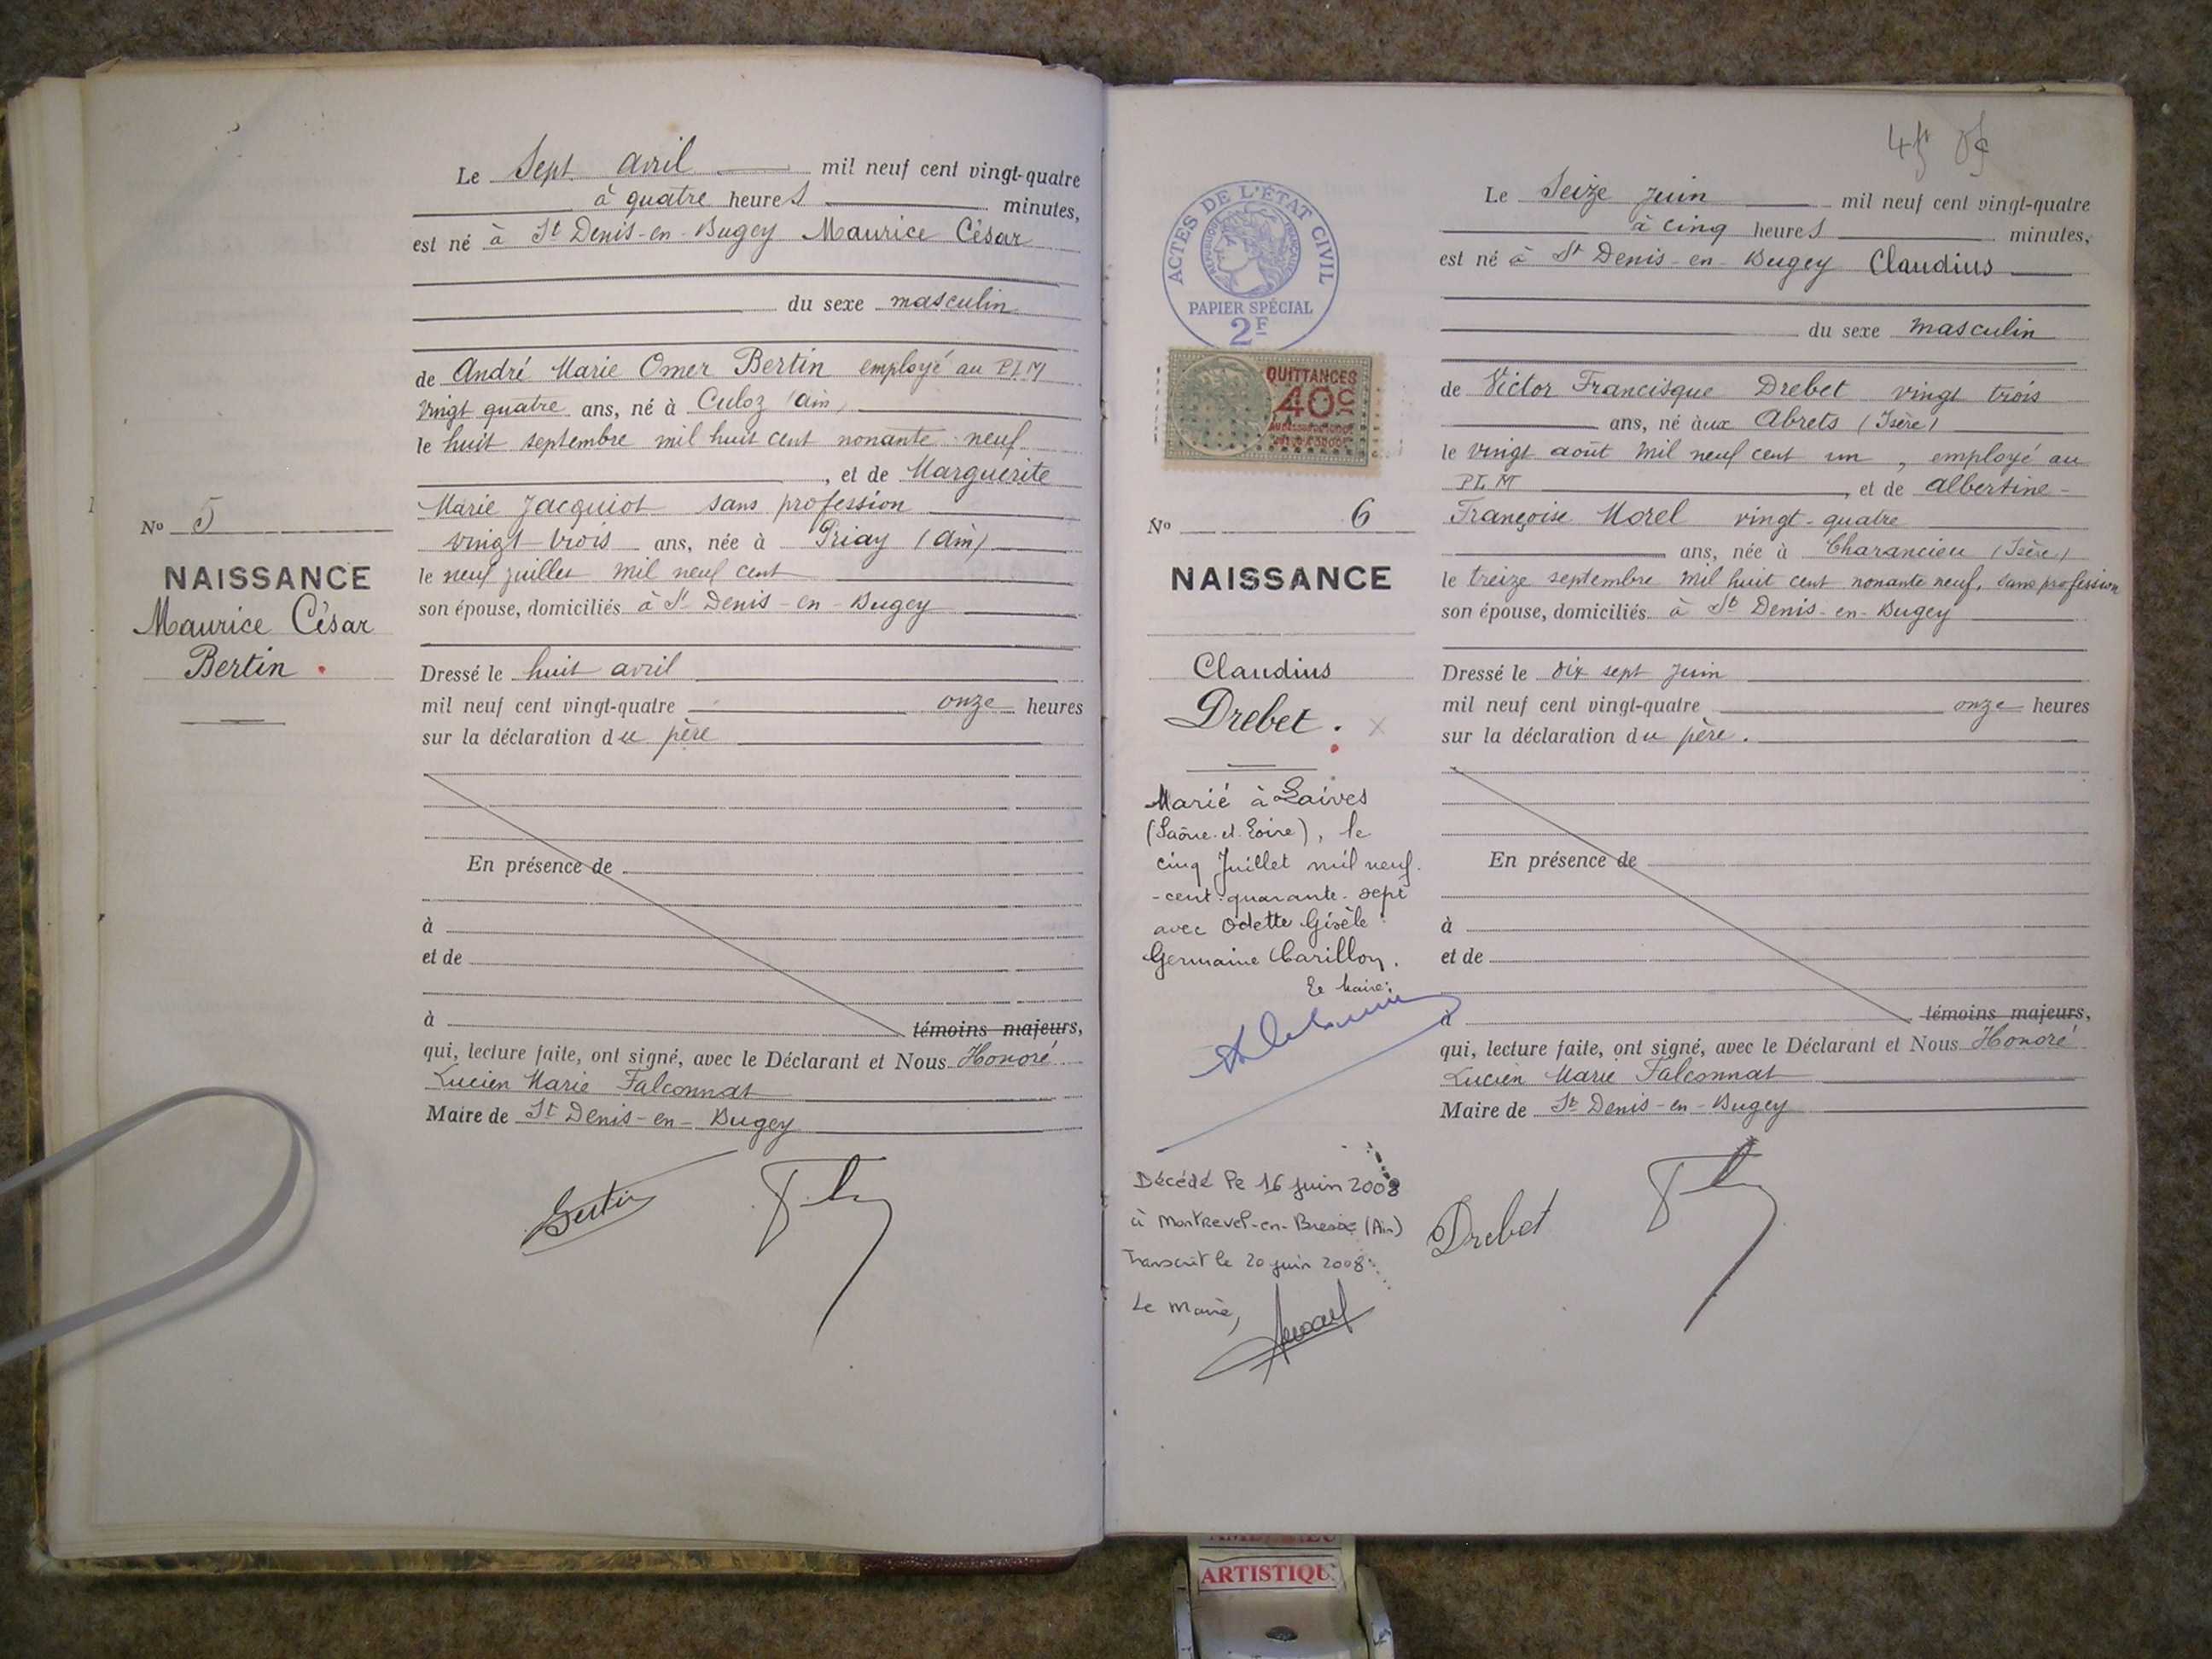 Le Sept avril mil neuf cent vingt-quatre
à quatre heures minutes,
est né à St Denis-en-Bugey Maurice César
du sexe masculin
de André Marie Omer Bertin employé au P.L.M
vingt quatre ans, né à Culoz (Ain)
le huit septembre mil huit cent nonante neuf
, et de Marguerite
Marie Jacquiot sans profession
vingt-trois ans, née à Priay (Ain)
le neuf juillet mil neuf cent
son épouse, domiciliés à St Denis-en-Bugey
No 5
NAISSANCE
Maurice César
Bertin
Dressé le huit avril
mil neuf cent vingt-quatre onze heures
sur la déclaration du père
En présence de
à
et de
à témoins majeurs,
qui, lecture faite, ont signé, avec le Déclarant et Nous Honoré
Lucien Marie Falconnat
Maire de St Denis-en-Bugey
Bertin
45
ACTES DE L'ÉTAT CIVIL
RÉPUBLIQUE FRANÇAISE
PAPIER SPÉCIAL
2F
QUITTANCES
40c
No 6
NAISSANCE
Claudius
Drebet.
Marié à Laives
(Saône-et-Loire), le
cinq Juillet mil neuf
-cent-quarante-sept
avec Odette Gisèle
Germaine Carillon.
Le Maire:
Décédé le 16 juin 2008
à Montrevel-en-Bresse (Ain)
Transcrit le 20 juin 2008
Le Maire,
Le Seize juin mil neuf cent vingt-quatre
à cinq heures minutes,
est né à St Denis-en-Bugey Claudius
du sexe masculin
de Victor Francisque Drebet vingt trois
ans, né aux Abrets (Isère)
le vingt août mil neuf cent un, employé au
PLM, et de Albertine-
Françoise Morel vingt-quatre
ans, née à Charancieu (Isère)
le treize septembre mil huit cent nonante neuf, sans profession
son épouse, domiciliés à St Denis-en-Bugey
Dressé le dix sept juin
mil neuf cent vingt-quatre onze heures
sur la déclaration du père.
En présence de
à
et de
à témoins majeurs,
qui, lecture faite, ont signé, avec le Déclarant et Nous Honoré
Lucien Marie Falconnat
Maire de St Denis-en-Bugey
Drebet
ARTISTIQU